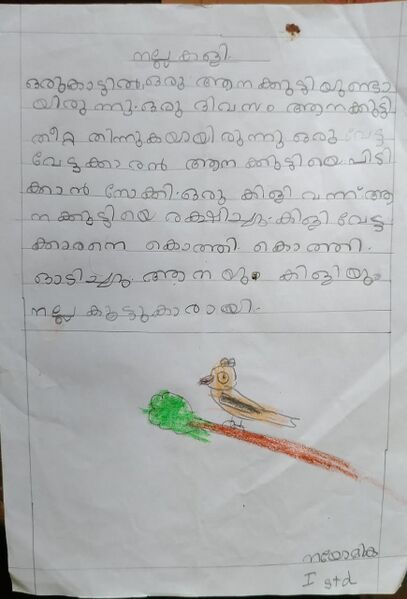 നല്ല കിളി.
ഒരുകാട്ടിൽ ഒരു ആനക്കുട്ടിയുണ്ടാ
യിരുന്നു. ഒരു ദിവസം ആനക്കുട്ടി
തീറ്റ തിന്നുകയായിരുന്നു ഒരു വേട്ട
വേട്ടക്കാരൻ ആനക്കുട്ടിയെ പിടി
ക്കാൻ നോക്കി. ഒരു കിളി വന്ന് ആ
നക്കുട്ടിയെ രക്ഷിച്ചു. കിളി വേട്ട
ക്കാരനെ കൊത്തി കൊത്തി.
ഓടിച്ചു. ആനയും കിളിയും
നല്ല കൂട്ടുകാരായി.
I std